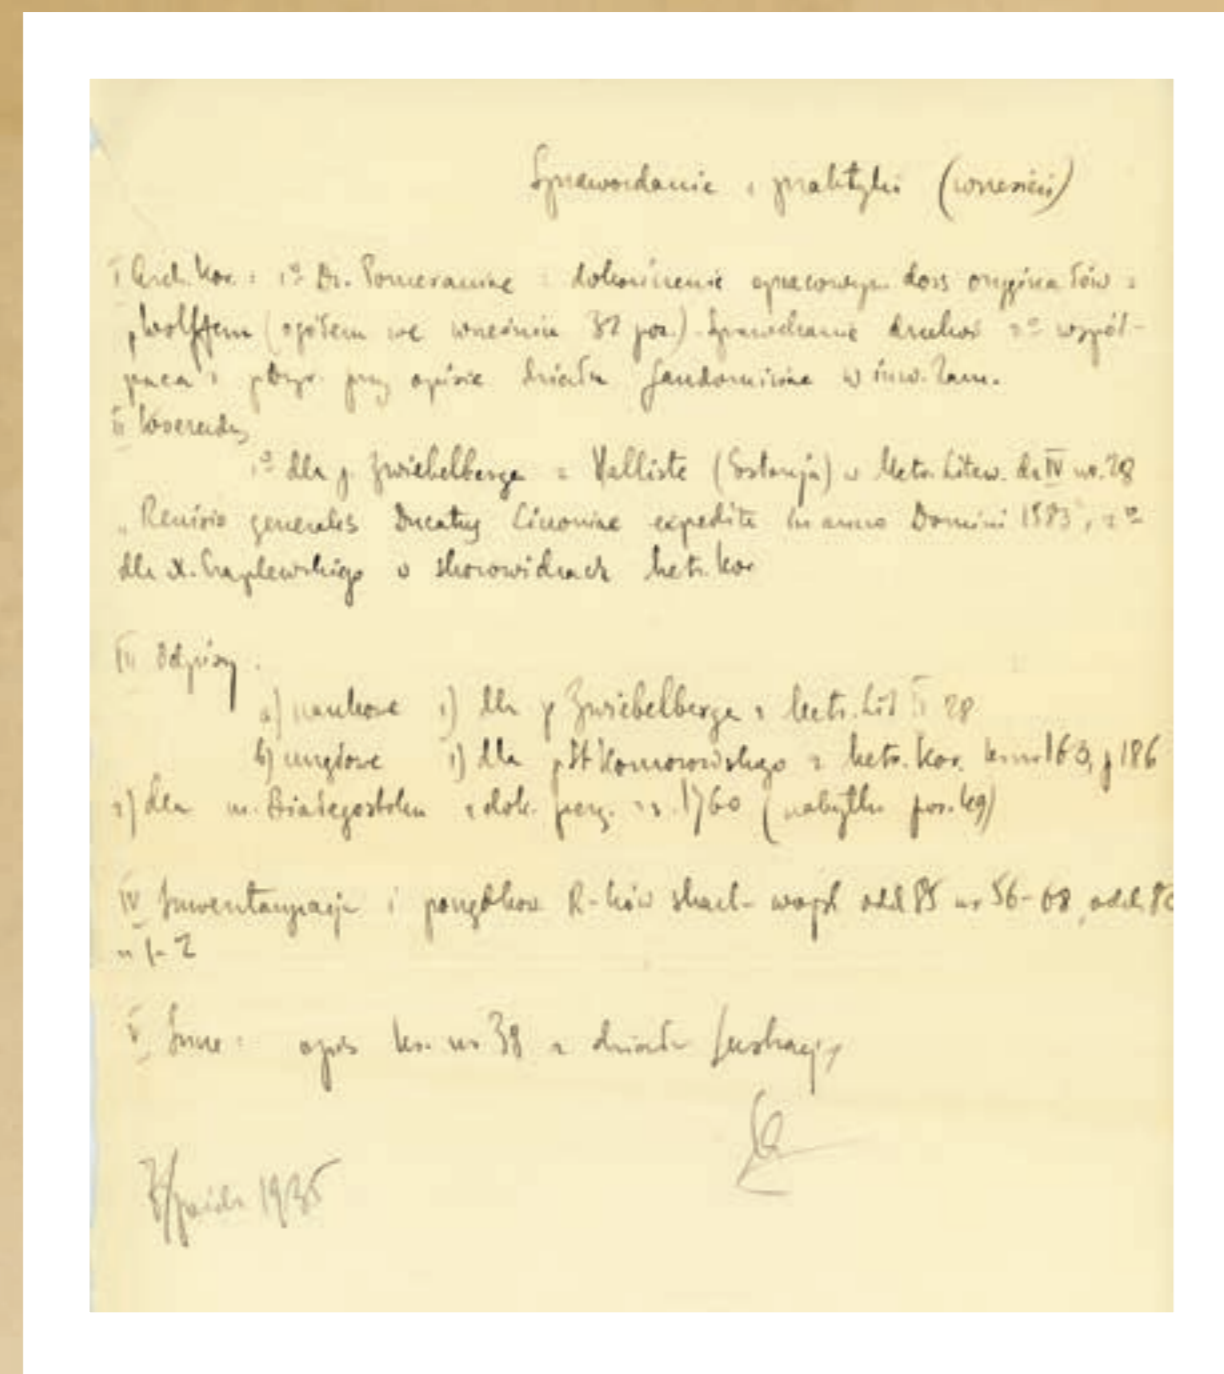 Sprawozdanie z praktyki (wrzesień)
I Arch. Kor. : 1º Dz. Pomeranica : dokończenie opracowyw. dors oryginałów z
p. Wolffem (ogółem we wrześniu 32 poz.) Sprawdzanie druków 2º współ-
praca z przy opisie działu Sandomirize w inw. Zam.
II Kwerendy
1º dla p. Zwiebelberga z Halliste (Estonja) w Metr. Litew. dz IV nr. 28
„Revisio generalis Ducatus Livoniae expedita in anno Domini 1583", 2º
dla X. Czaplewskiego o skorowidzach Metr. Kor
III Odpisy :
a) naukowe 1) dla p Zwiebelberga z Metr. Lit 28
b) urzędowe 1) dla p St Komorowskiego z Metr. Kor. 163, p 186
2) dla m. Białegostoku z dok. perg. z r. 1760 (nabytki poz. 49)
IV Inwentaryzacja i porządkow R-ków skarb- wojsk odd 85 nr 56-68, odd. 86
nr 1-2
V Inne : opis ks. nr 38 z działu Lustracyj
3/paźdz 1935